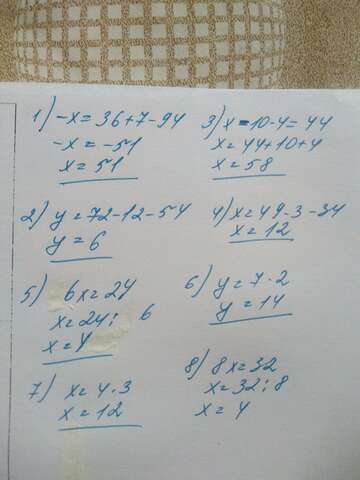 1) -x = 36+7-94
-x = -51
x = 51
3) x - 10-4 = 44
x = 44+10+4
x = 58
2) y = 72-12-54
y = 6
4) x = 49-3-34
x = 12
5) 6x = 24
x = 24 : 6
x = 4
6) y = 7 · 2
y = 14
7) x = 4 · 3
x = 12
8) 8x = 32
x = 32 : 8
x = 4